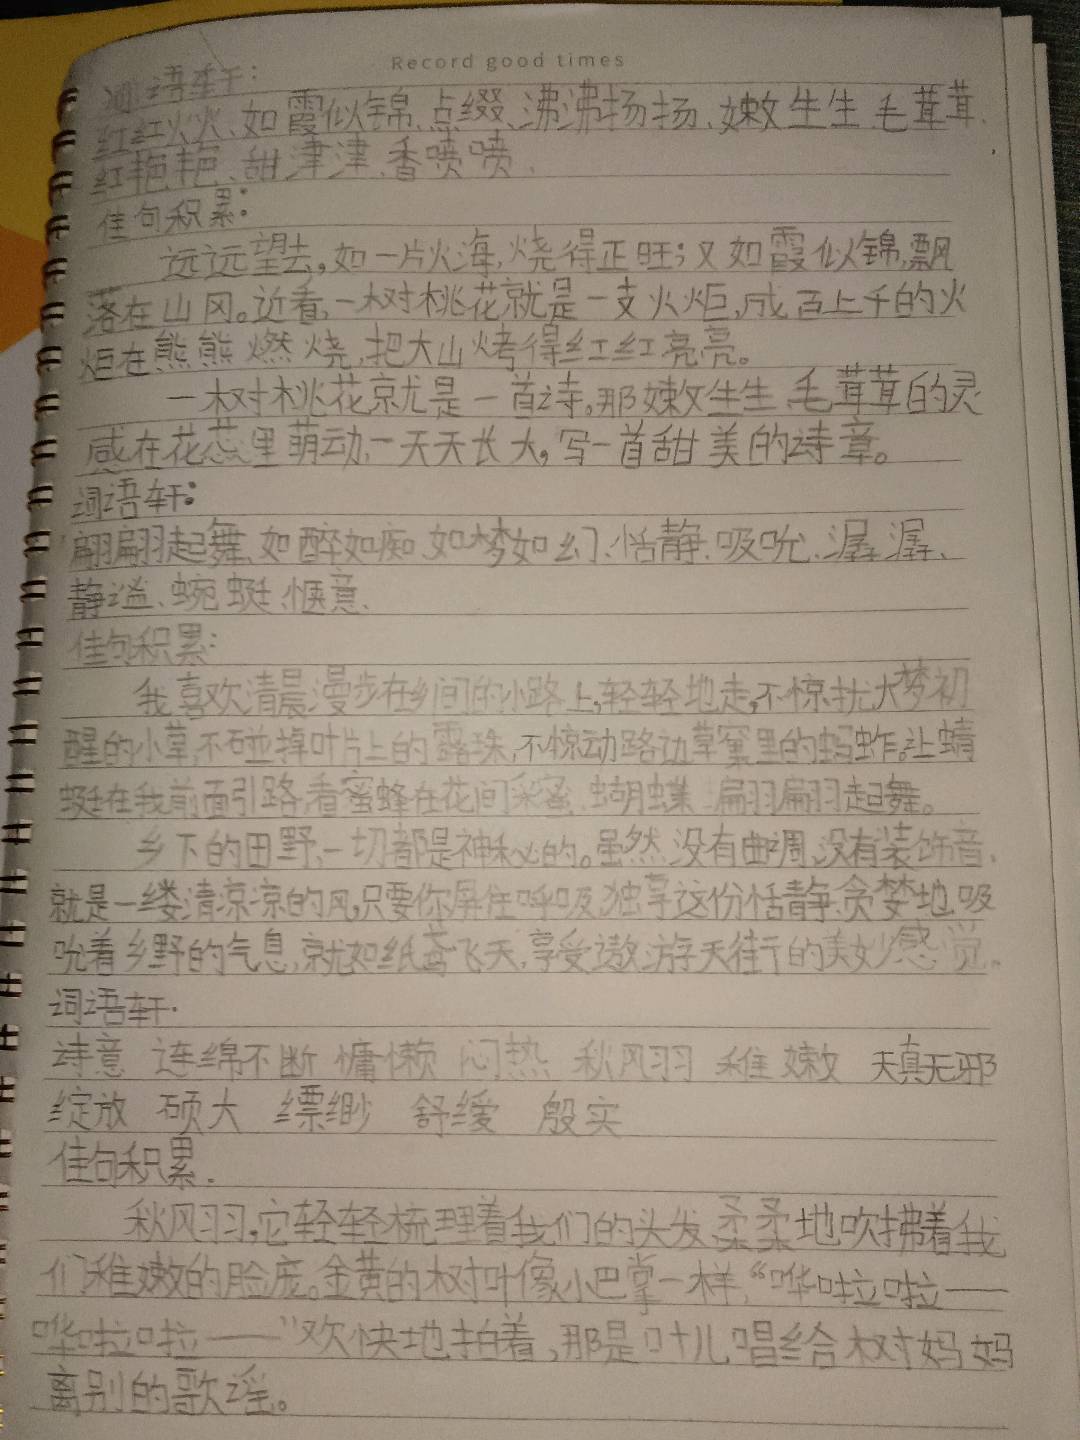 Record good times
词语轩:
红红火火、如霞似锦、点缀、沸沸扬扬、嫩生生、毛茸茸、
红艳艳、甜津津、香喷喷、
佳句积累:
远远望去,如一片火海,烧得正旺;又如霞似锦,飘
落在山冈。近看,一树桃花就是一支火炬,成百上千的火
炬在熊熊燃烧,把大山烤得红红亮亮。
一树桃花就是一首诗。那嫩生生、毛茸茸的灵
感在花蕊里萌动,一天天长大,写一首甜美的诗章。
词语轩:
翩翩起舞、如醉如痴、如梦如幻、恬静、吸吮、潺潺、
静谧、蜿蜒、惬意、
佳句积累:
我喜欢清晨漫步在乡间的小路上,轻轻地走,不惊扰大梦初
醒的小草,不碰掉叶片上的露珠,不惊动路边草窠里的蚂蚱。让蜻
蜓在我前面引路,看蜜蜂在花间采蜜、蝴蝶翩翩起舞。
乡下的田野,一切都是神秘的。虽然没有曲调,没有装饰音,
就是一缕清凉凉的风,只要你屏住呼吸,独享这份恬静,贪婪地吸
吮着乡野的气息,就如纸鸢飞天,享受遨游天街的美妙感觉。
词语轩.
诗意 连绵不断 慵懒 闷热 秋风羽羽 稚嫩 天真无邪
绽放 硕大 缥缈 舒缓 殷实
佳句积累.
秋风羽羽,它轻轻梳理着我们的头发,柔柔地吹拂着我
们稚嫩的脸庞。金黄的树叶像小巴掌一样,“哗啦啦——
哗啦啦——”欢快地拍着,那是叶儿唱给树妈妈
离别的歌谣。